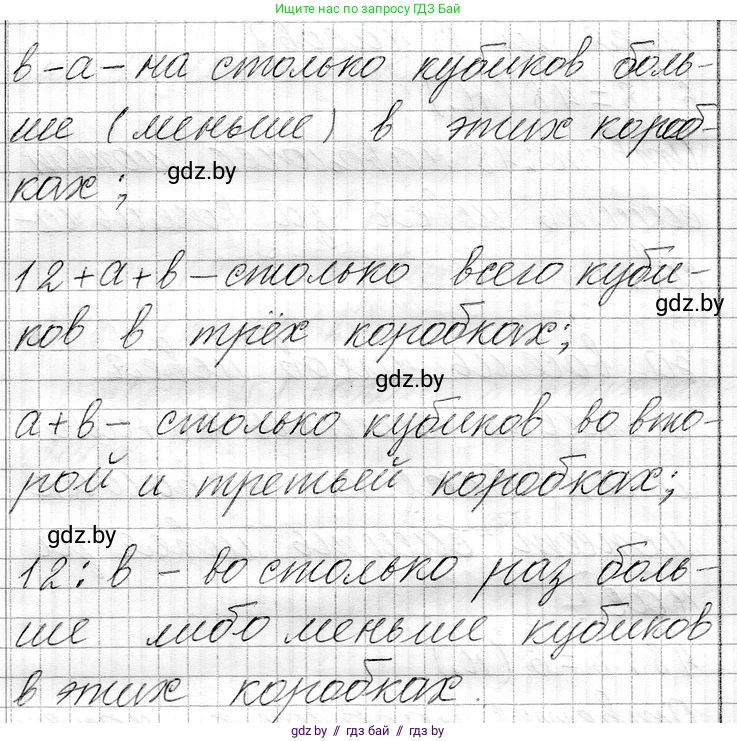 Ищите нас по запросу ГДЗ Бай
в-а-на столько кубиков боль-
ше (меньше) в этих короб-
ках;
gdz.by
12+а+в-столько всего куби-
gdz.by
ков в трёх коробках;
gdz.by
а+в- столько кубиков во вто-
рой и третьей коробках;
gdz.by
12:в - во столько раз боль-
ше либо меньше кубиков
в этих коробках.
gdz.by // гдз бай // гдз by